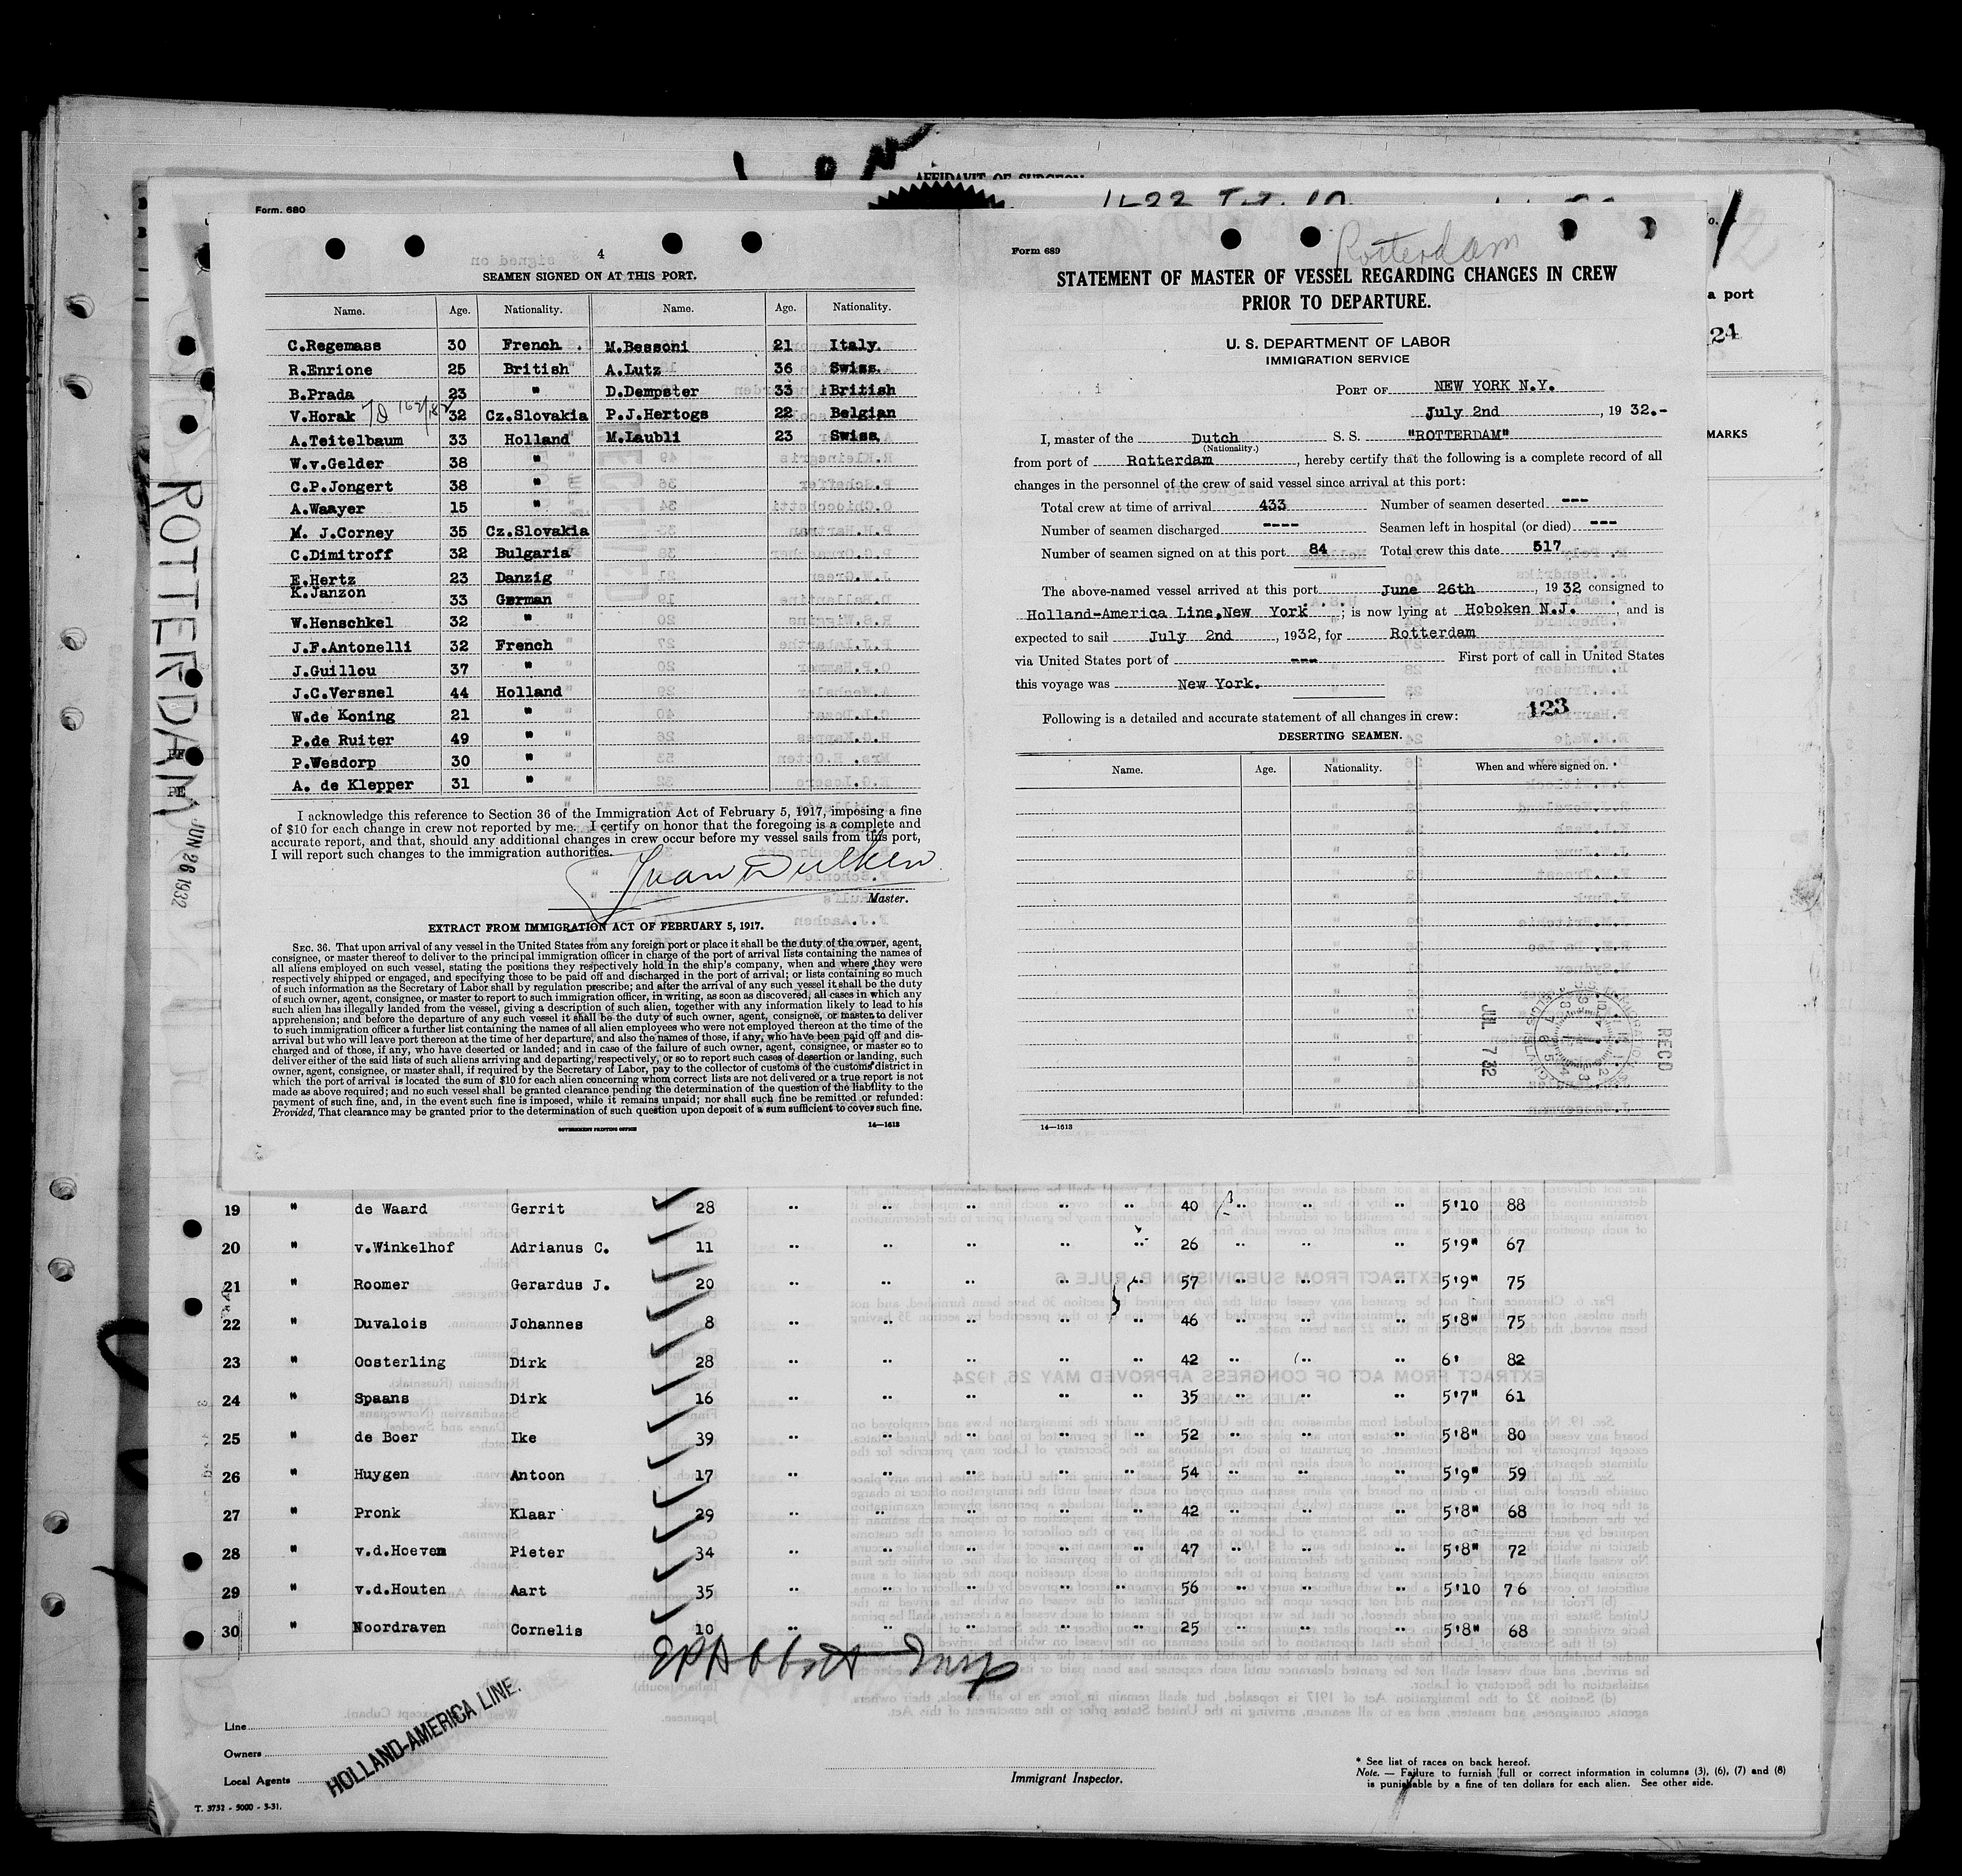 AFFIDAVIT OF SURGEON
Form. 680
4
SEAMEN SIGNED ON AT THIS PORT.
Name. Age. Nationality. Name. Age. Nationality.
C.Regemass 30 French . M.Bessoni 21 Italy.
R.Enrione 25 British A.Lutz 36 Swiss.
B.Prada 23 " D.Dempster 33 British
V.Horak 32 Cz.Slovakia P.J.Hertogs 22 Belgian
A.Teitelbaum 33 Holland M.Laubli 23 Swiss
W.v.Gelder 38 "
C.P.Jongert 38 "
A.Waayer 15 "
M. J.Corney 35 Cz.Slovakia
C.Dimitroff 32 Bulgaria
E.Hertz 23 Danzig
K.Janzon 33 German
W.Henschkel 32 "
J.F.Antonelli 32 French
J.Guillou 37 "
J.C.Versnel 44 Holland
W.de Koning 21 "
P.de Ruiter 49 "
P.Wesdorp 30 "
A. de Klepper 31 "
I acknowledge this reference to Section 36 of the Immigration Act of February 5, 1917, imposing a fine
of $10 for each change in crew not reported by me. I certify on honor that the foregoing is a complete and
accurate report, and that, should any additional changes in crew occur before my vessel sails from this port,
I will report such changes to the immigration authorities.
Master.
EXTRACT FROM IMMIGRATION ACT OF FEBRUARY 5, 1917.
SEC. 36. That upon arrival of any vessel in the United States from any foreign port or place it shall be the duty of the owner, agent,
consignee, or master thereof to deliver to the principal immigration officer in charge of the port of arrival lists containing the names of
all aliens employed on such vessel, stating the positions they respectively hold in the ship's company, when and where they were
respectively shipped or engaged, and specifying those to be paid off and discharged in the port of arrival; or lists containing so much
of such information as the Secretary of Labor shall by regulation prescribe; and after the arrival of any such vessel it shall be the duty
of such owner, agent, consignee, or master to report to such immigration officer, in writing, as soon as discovered, all cases in which any
such alien has illegally landed from the vessel, giving a description of such alien, together with any information likely to lead to his
apprehension; and before the departure of any such vessel it shall be the duty of such owner, agent, consignee, or master to deliver
to such immigration officer a further list containing the names of all alien employees who were not employed thereon at the time of the
arrival but who will leave port thereon at the time of her departure, and also the names of those, if any, who have been paid off and dis-
charged and of those, if any, who have deserted or landed; and in case of the failure of such owner, agent, consignee, or master so to
deliver either of the said lists of such aliens arriving and departing, respectively, or so to report such cases of desertion or landing, such
owner, agent, consignee, or master shall, if required by the Secretary of Labor, pay to the collector of customs of the customs district in
which the port of arrival is located the sum of $10 for each alien concerning whom correct lists are not delivered or a true report is not
made as above required; and no such vessel shall be granted clearance pending the determination of the question of the liability to the
payment of such fine, and, in the event such fine is imposed, while it remains unpaid; nor shall such fine be remitted or refunded:
Provided, That clearance may be granted prior to the determination of such question upon deposit of a sum sufficient to cover such fine.
GOVERNMENT PRINTING OFFICE
14—1613
Form 689
Rotterdam
STATEMENT OF MASTER OF VESSEL REGARDING CHANGES IN CREW
PRIOR TO DEPARTURE.
U. S. DEPARTMENT OF LABOR
IMMIGRATION SERVICE
PORT OF NEW YORK N.Y.
July 2nd , 19 32.-
I, master of the Dutch S. S. "ROTTERDAM"
(Nationality.)
from port of Rotterdam , hereby certify that the following is a complete record of all
changes in the personnel of the crew of said vessel since arrival at this port:
Total crew at time of arrival 433 Number of seamen deserted ---
Number of seamen discharged ---- Seamen left in hospital (or died) ---
Number of seamen signed on at this port 84 Total crew this date 517
The above-named vessel arrived at this port June 26th , 19 32 consigned to
Holland-America Line,New York ; is now lying at Hoboken N.J. , and is
expected to sail July 2nd , 1932, for Rotterdam
via United States port of --- First port of call in United States
this voyage was New York.
123
Following is a detailed and accurate statement of all changes in crew:
DESERTING SEAMEN.
Name. Age. Nationality. When and where signed on.
RECD
JUL 7 32
14—1613
a port
24
MARKS
ROTTERDAM
JUN 26 1932
19 " de Waard Gerrit 28 " " " " " 40 " " " 5'10 88
20 " v.Winkelhof Adrianus C. 11 " " " " " 26 " " " 5'9" 67
21 " Roomer Gerardus J. 20 " " " " " 57 " " " 5'9" 75
22 " Duvalois Johannes 8 " " " " " 46 " " " 5'8" 75
23 " Oosterling Dirk 28 " " " " " 42 " " " 6' 82
24 " Spaans Dirk 16 " " " " " 35 " " " 5'7" 61
25 " de Boer Ike 39 " " " " " 52 " " " 5'8" 80
26 " Huygen Antoon 17 " " " " " 54 " " " 5'9" 59
27 " Pronk Klaar 29 " " " " " 42 " " " 5'8" 68
28 " v.d.Hoeven Pieter 34 " " " " " 47 " " " 5'8" 72
29 " v.d.Houten Aart 35 " " " " " 56 " " " 5'10 76
30 " Noordraven Cornelis 10 " " " " " 25 " " " 5'8" 68
Line
Owners
Local Agents
HOLLAND-AMERICA LINE.
T. 3732 - 5000 - 3-31.
Immigrant Inspector.
* See list of races on back hereof.
Note. — Failure to furnish full or correct information in columns (3), (6), (7) and (8)
is punishable by a fine of ten dollars for each alien. See other side.